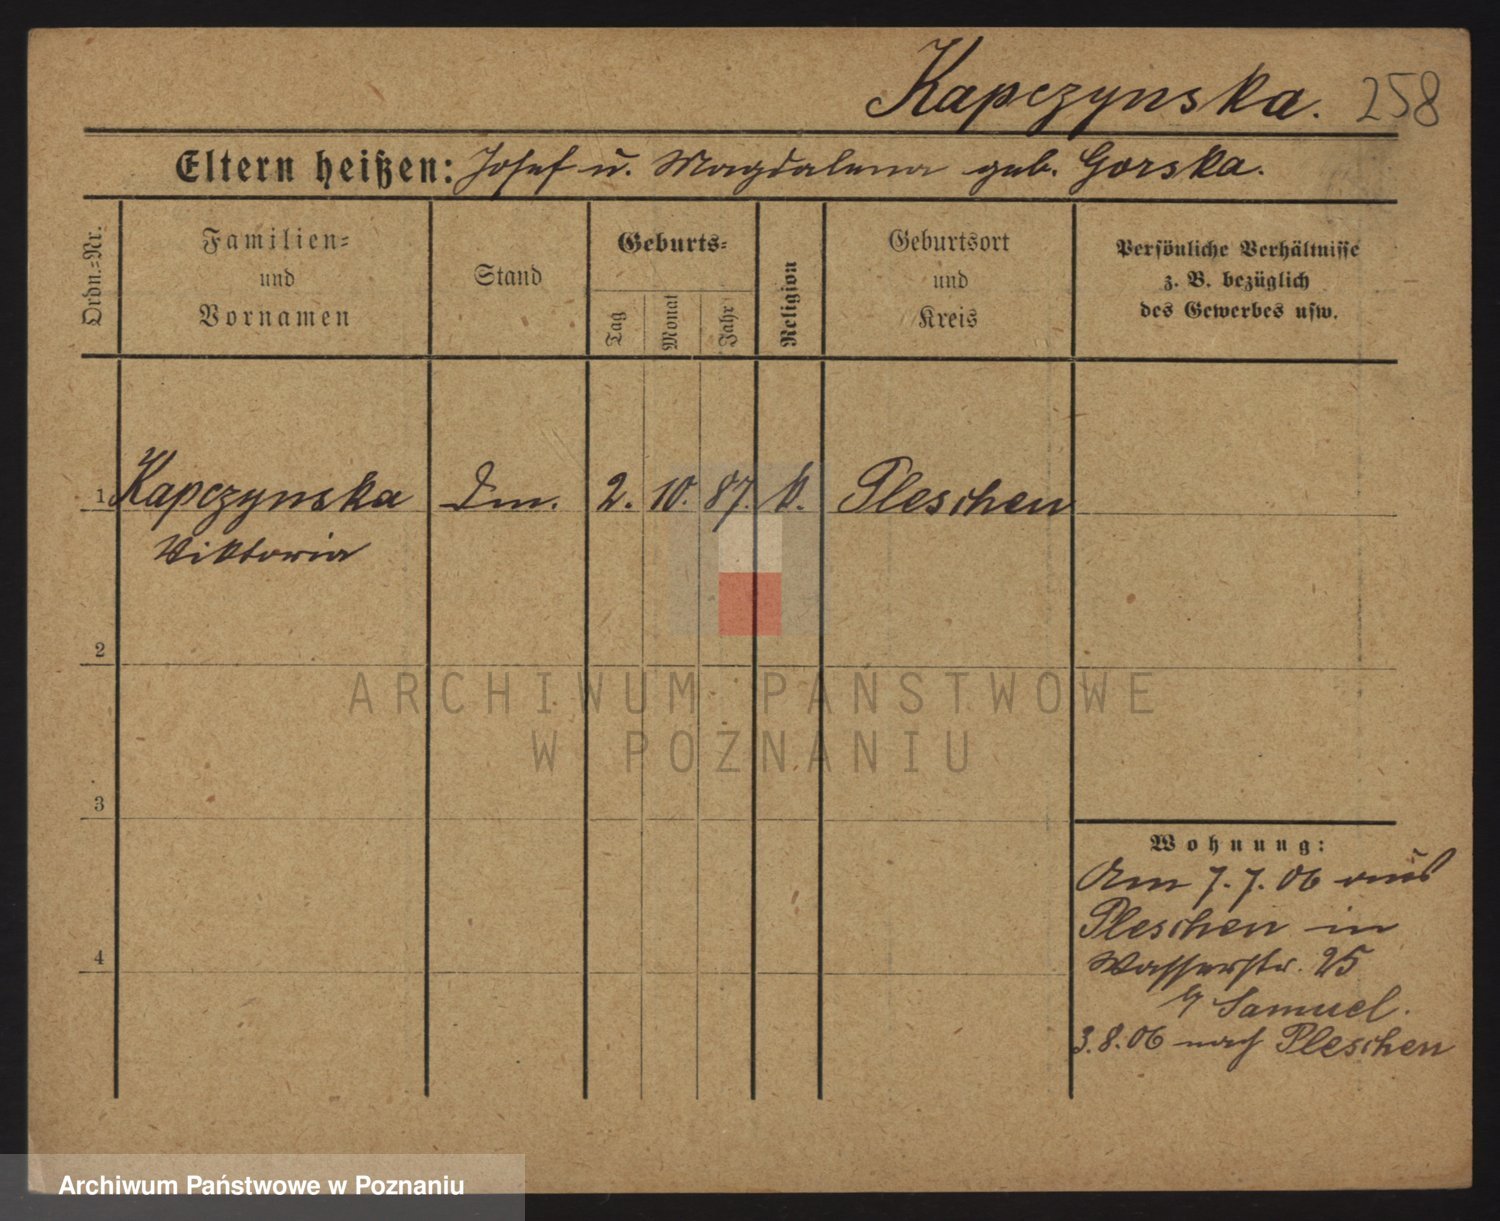 Kapczynska. 258
Eltern heißen: Josef u. Magdalena geb. Gorska.
Ordn.-Nr.
Familien-
und
Vornamen
Stand
Geburts-
Tag
Monat
Jahr
Religion
Geburtsort
und
Kreis
Persönliche Verhältnisse
z. B. bezüglich
des Gewerbes usw.
1 Kapczynska Dm. 2. 10. 87. k. Pleschen
Viktoria
2
3
4
Wohnung:
Am 7.7.06 aus
Pleschen in
Wasserstr. 25
Samuel.
3.8.06 nach Pleschen
ARCHIWUM PAŃSTWOWE
W POZNANIU
Archiwum Państwowe w Poznaniu